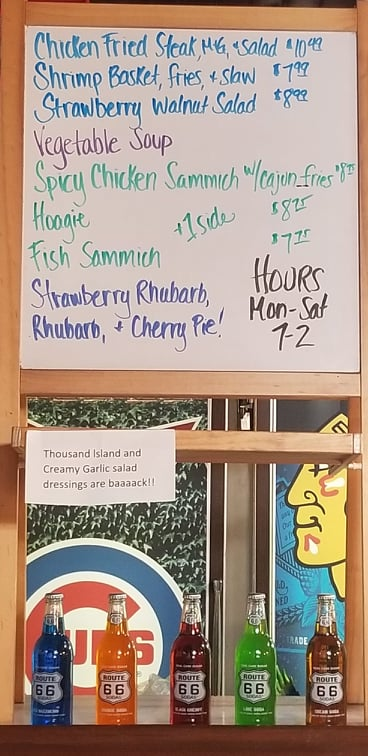 Chicken Fried Steak, M+G, + salad $10.49
Shrimp Basket, fries, + slaw $7.99
Strawberry Walnut Salad $8.99
Vegetable Soup
Spicy Chicken Sammich w/Cajun fries $8.75
Hoagie +1 side $8.25
Fish Sammich $7.75
Strawberry Rhubarb,
Rhubarb, + Cherry Pie!
HOURS
Mon-Sat
7-2
Thousand Island and
Creamy Garlic salad
dressings are baaaack!!
CUBS
TRADE
ROUTE
66
SODAS
ROUTE
66
SODAS
ORANGE SODA
ROUTE
66
SODAS
BLACK CHERRY
ROUTE
66
SODAS
LIME SODA
ROUTE
66
SODAS
CREAM SODA